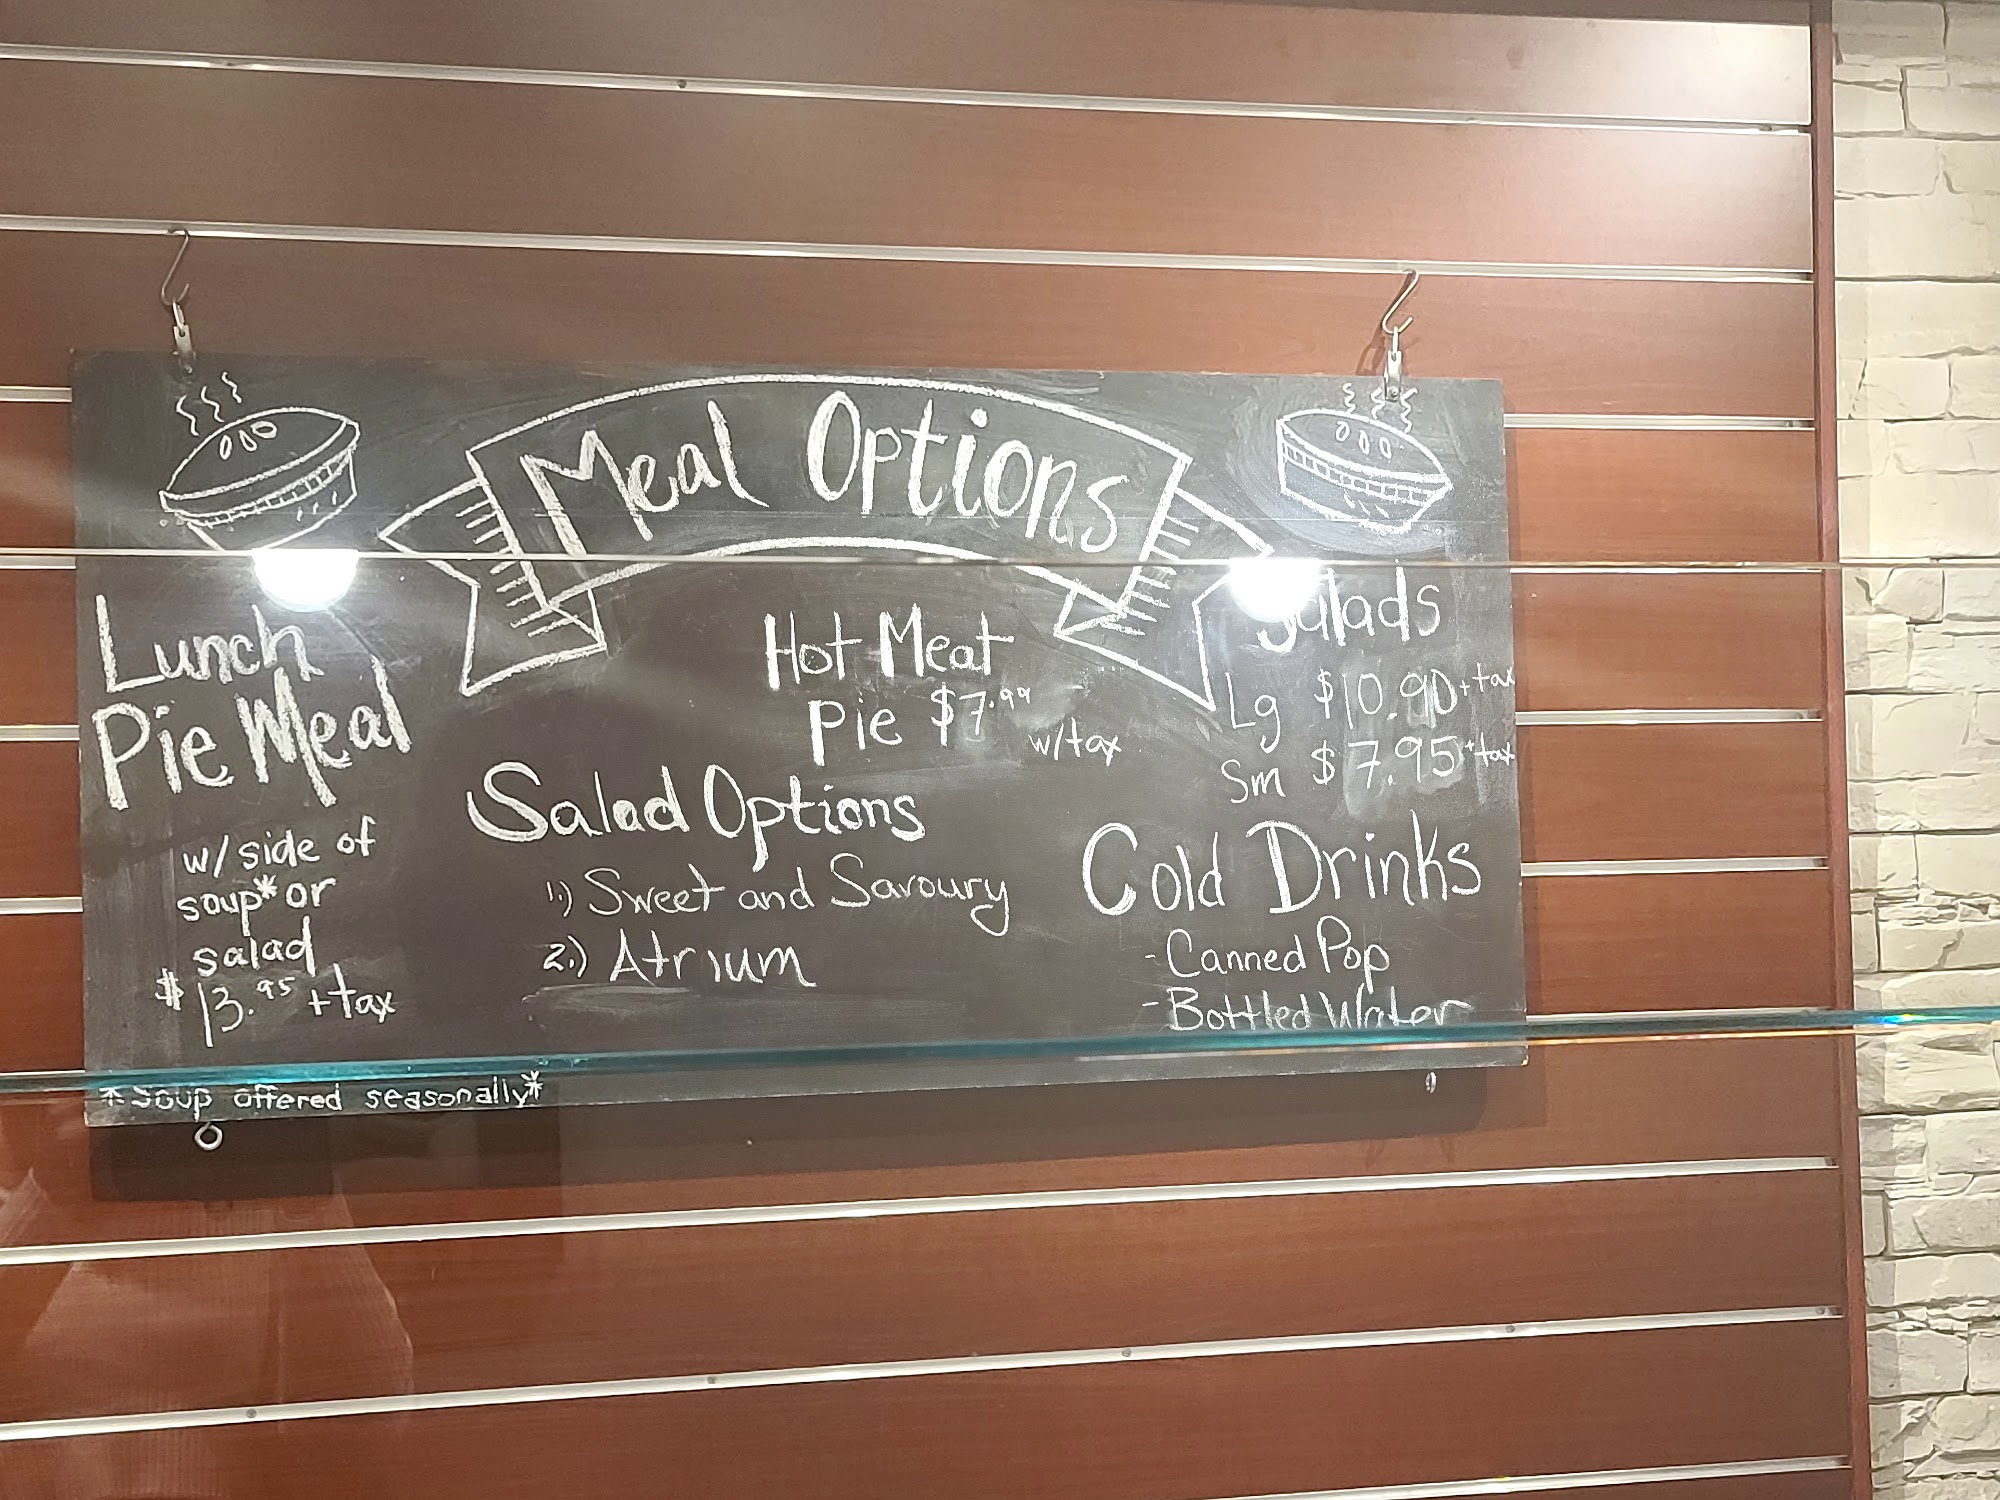 Meal Options
Lunch
Pie Meal
w/ side of
soup* or
salad
$13.95 + tax
*Soup offered seasonally*
Hot Meat
Pie $7.99
w/tax
Salad Options
1.) Sweet and Savoury
2.) Atrium
Salads
Lg $10.90 + tax
Sm $7.95 + tax
Cold Drinks
- Canned Pop
- Bottled Water